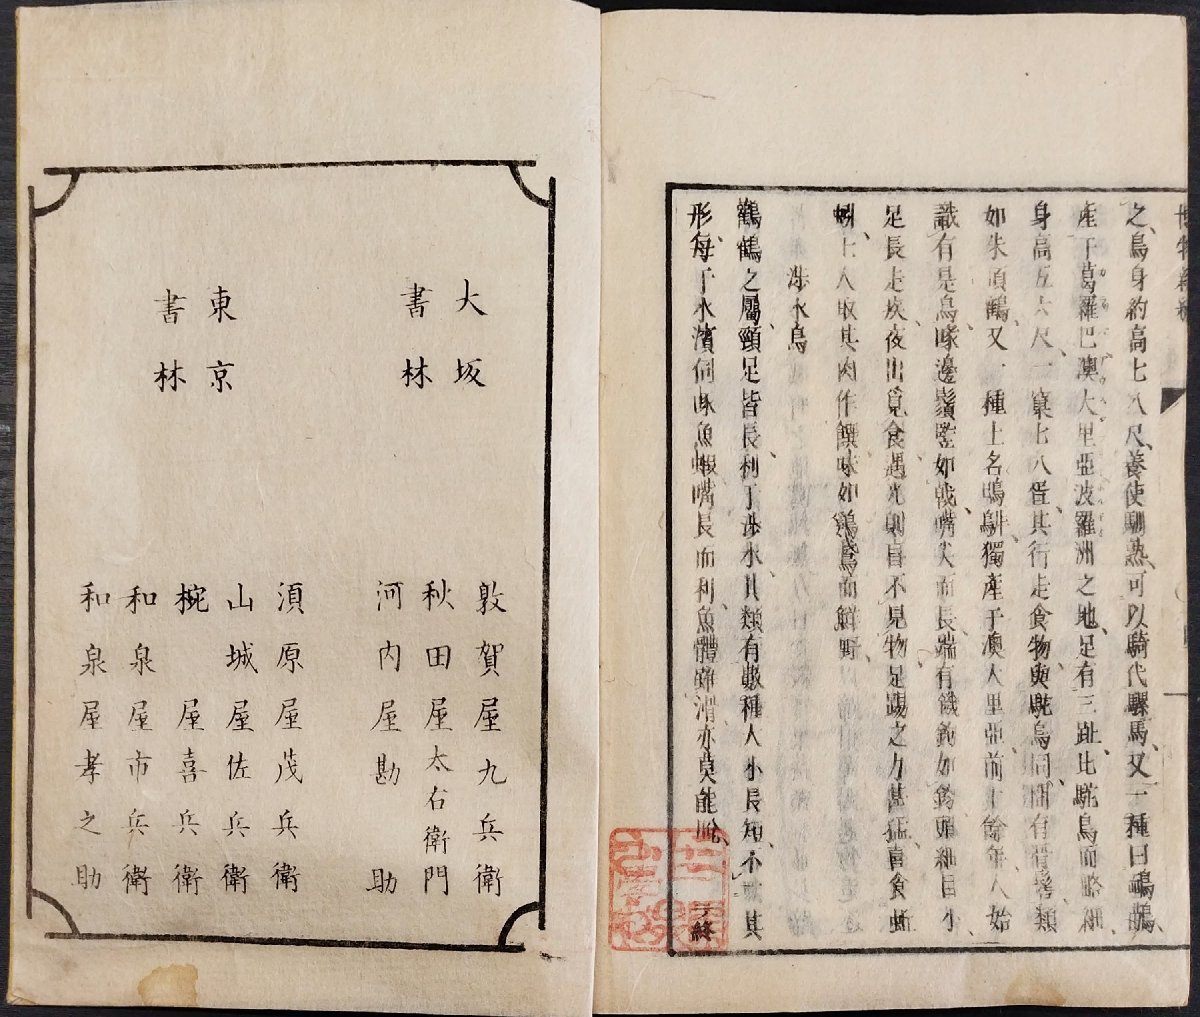 博物新編
之鳥身約高七八尺養使馴熟可以騎代騾馬又一種曰鴯鶓
產于葛羅巴澳大里亞波羅洲之地足有三趾比駝鳥而略細
身高五六尺一窠七八蛋其行走食物與駝鳥同間有冠髻類
如朱頂鶴又一種土名鴟鴕獨產于澳大里亞前十餘年人始
識有是鳥喙邊鬚竪如戟嘴尖而長端有鐵鈎如鈴頭細目小
足長走疾夜出覓食遇光則盲不見物足踢之力甚猛喜食蚯
蚓土人取其肉作饌味如鷄鳶而鮮野
涉水鳥
鸛鶴之屬頸足皆長利于涉水其類有數種大小長短不齊其
形每于水濱伺啄魚蝦嘴長而利魚體雖滑亦莫能脫
終
大坂
書林
敦賀屋九兵衛
秋田屋太右衛門
河内屋勘助
東京
書林
須原屋茂兵衛
山城屋佐兵衛
椀屋喜兵衛
和泉屋市兵衛
和泉屋孝之助